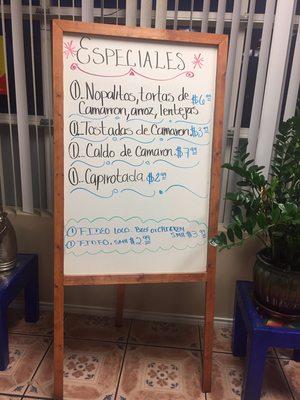 ESPECIALES
1. Nopalitos, tortas de $6
Camaron, arroz, lentejas
1. Tostadas de Camaron $3
1. Caldo de Camaron $7
1. Capirotada $2
1 FIDEO LOCO BEEF OR CHICKEN SMR $3
1 FIDEO, SMR $2.99